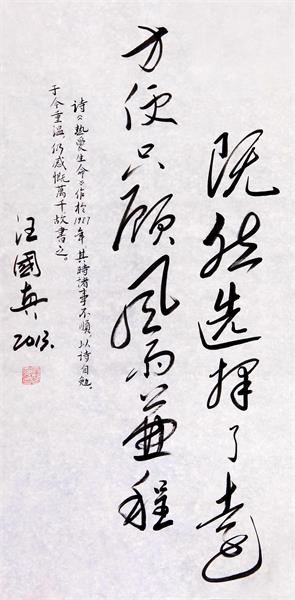 既然选择了遠
方便只顾风雨兼程
诗《热爱生命》作於1987年,其時諸事不順,以诗自勉。
于今重温仍感慨萬千故書之。
汪國真
2013.